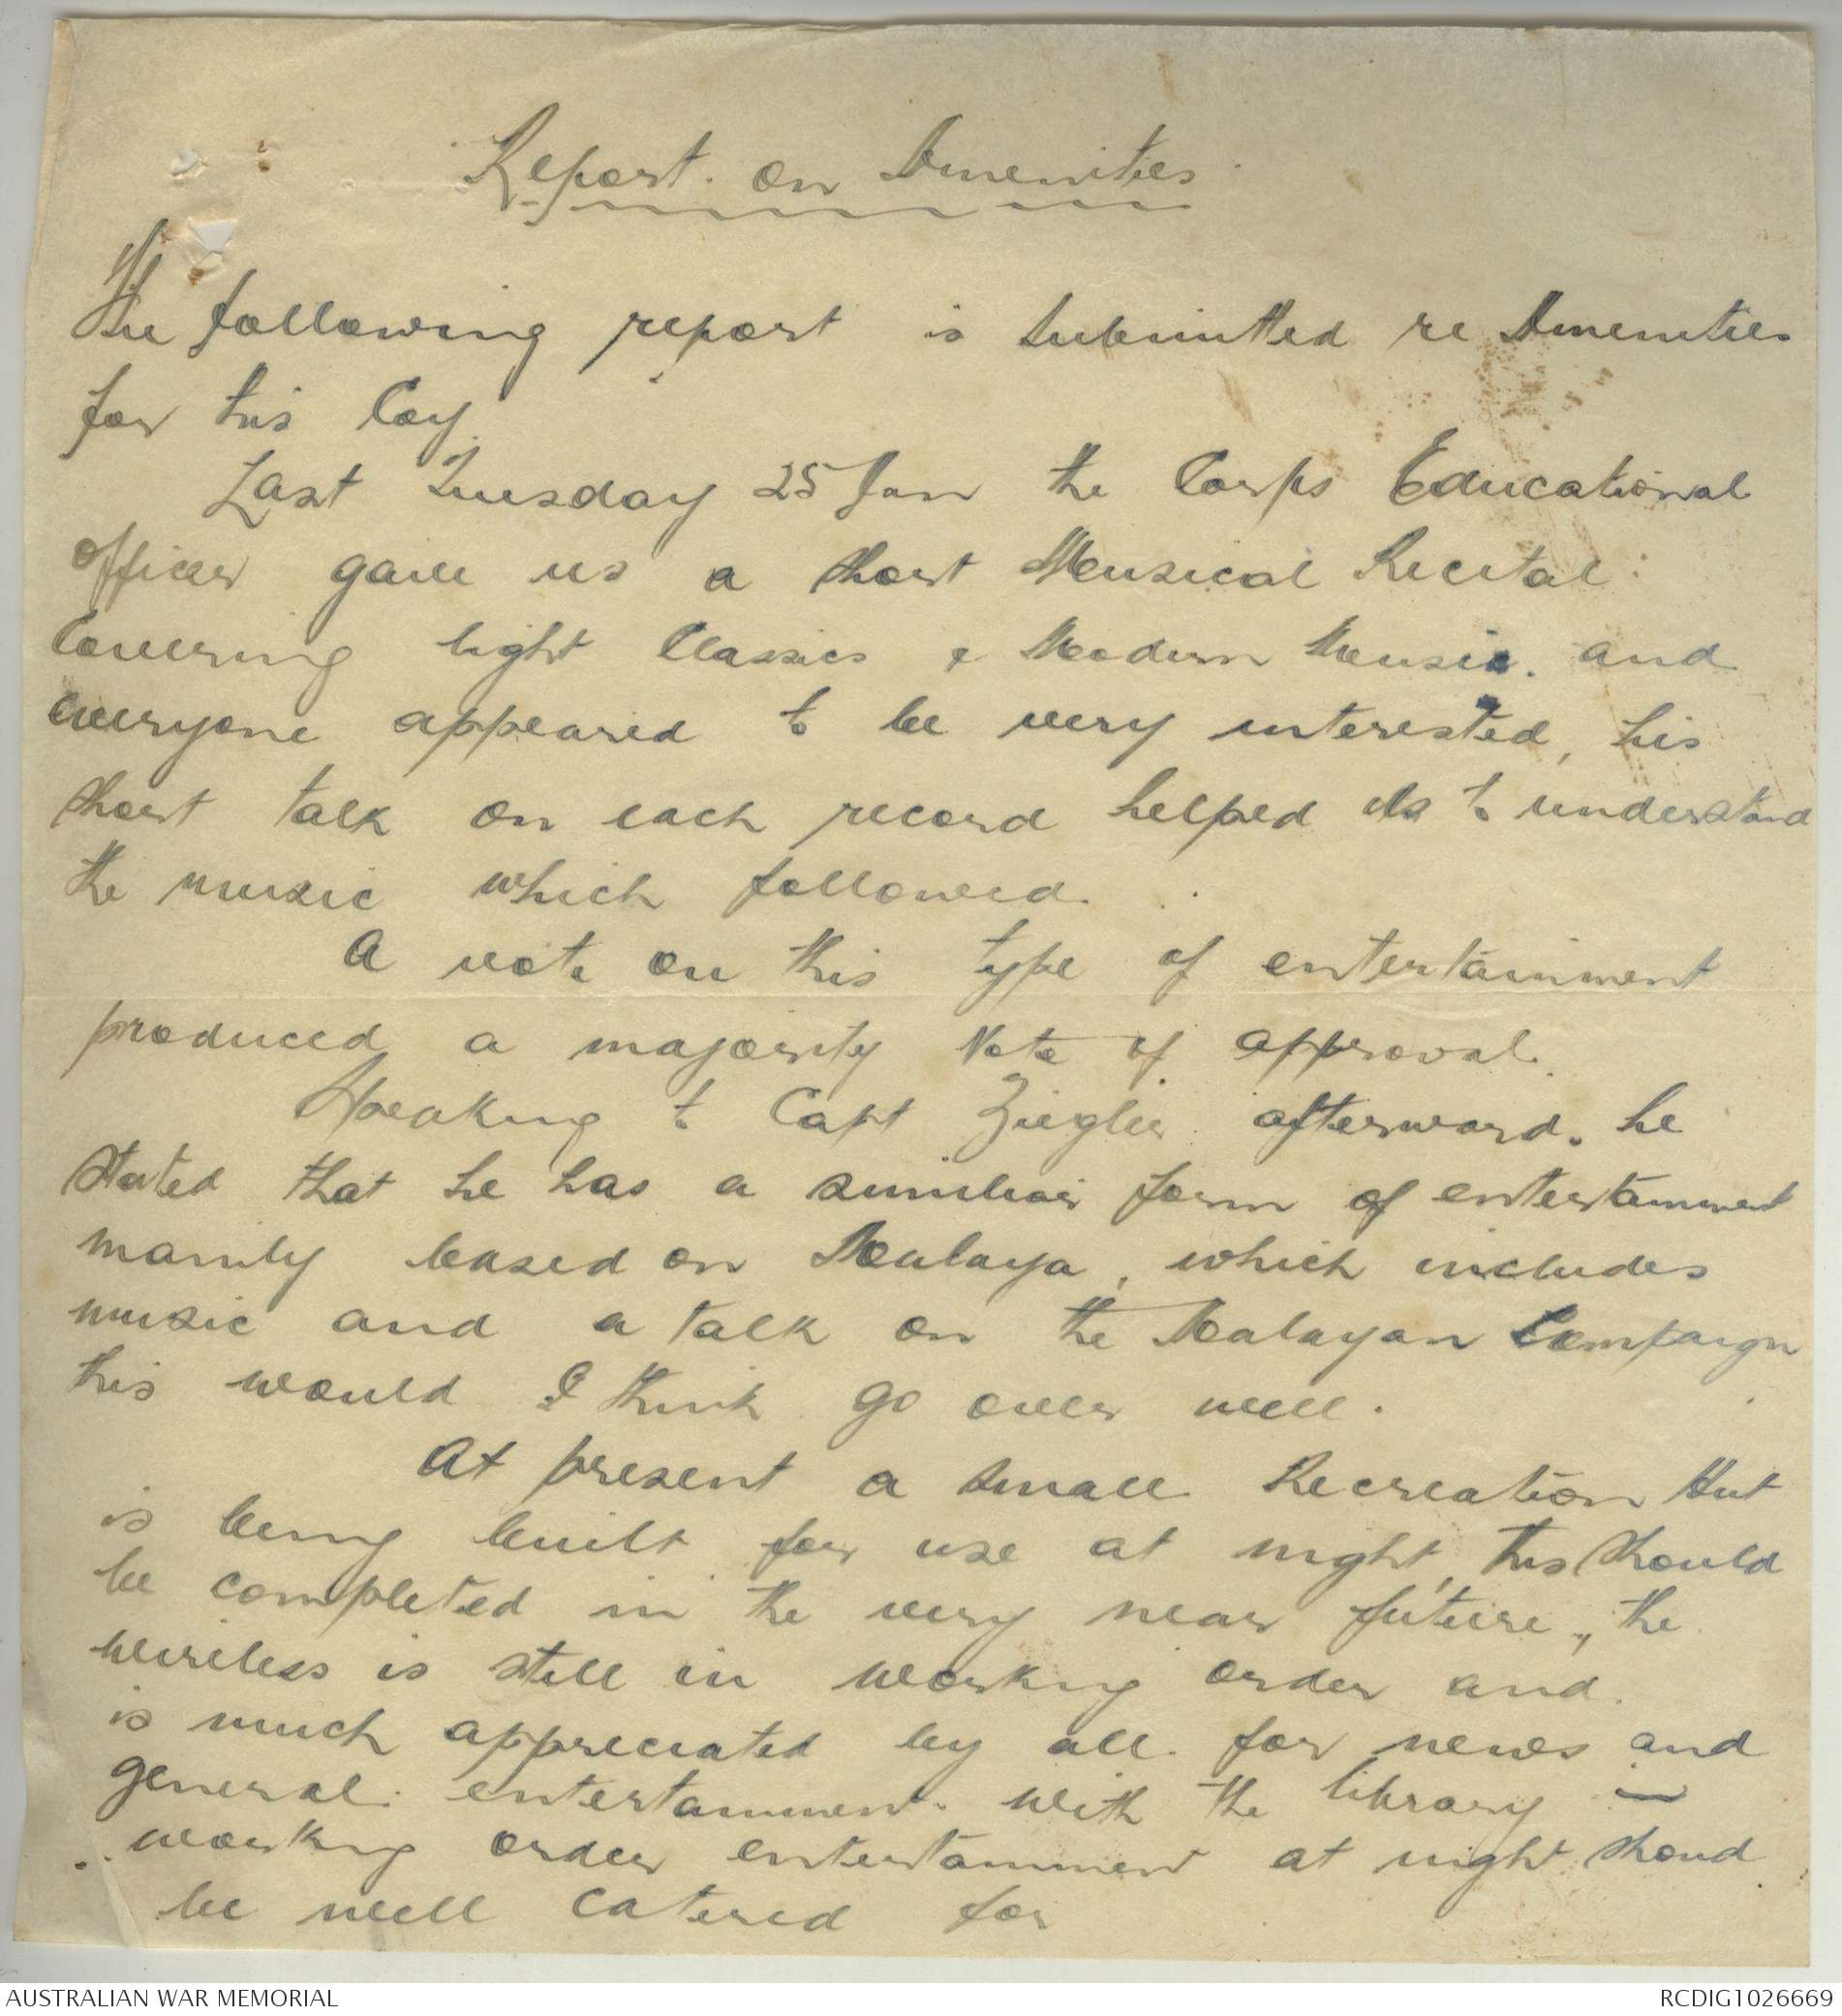 Report on Amenities
The following report is submitted re Amenities
for this Coy.
Last Tuesday 25 Jan the Corps Educational
officer gave us a short Musical Recital
Covering light Classics & Modern Music. and
everyone appeared to be very interested, his
short talk on each record helped us to understand
the music which followed.
A vote on this type of entertainment
produced a majority Vote of approval.
Speaking to Capt Ziegler afterward, he
stated that he has a similiar form of entertainment
mainly based on Malaya, which includes
music and a talk on the Malayan Campaign
this would I think go over well.
At present a small Recreation Hut
is being built for use at night, this should
be completed in the very near future, the
wireless is still in working order and
is much appreciated by all for news and
general entertainment. With the library in
working order entertainment at night shoud
be well catered for
AUSTRALIAN WAR MEMORIAL
RCDIG1026669